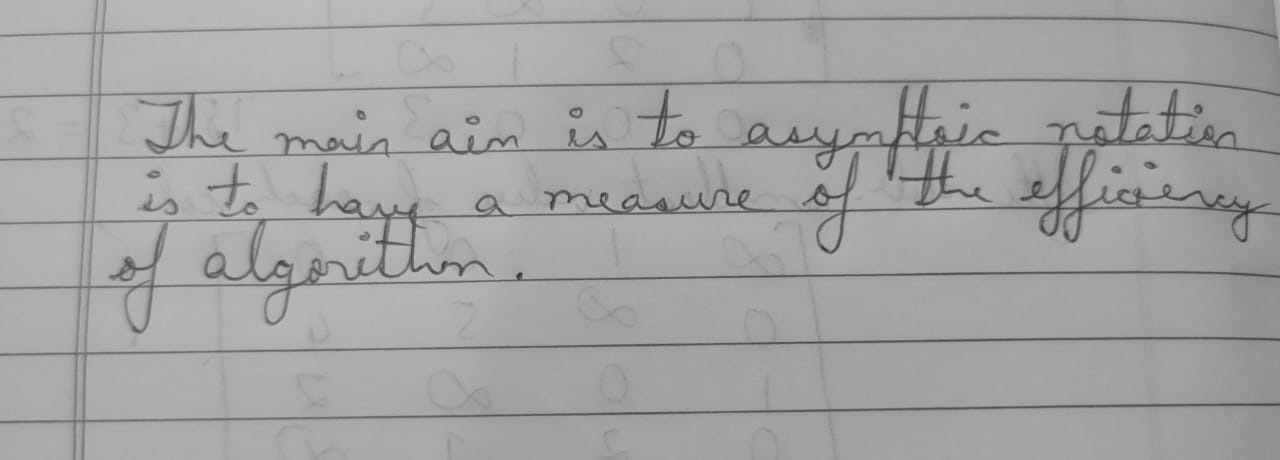 The main aim is to asymptoic notation
is to have a measure of the efficiency
of algorithm.